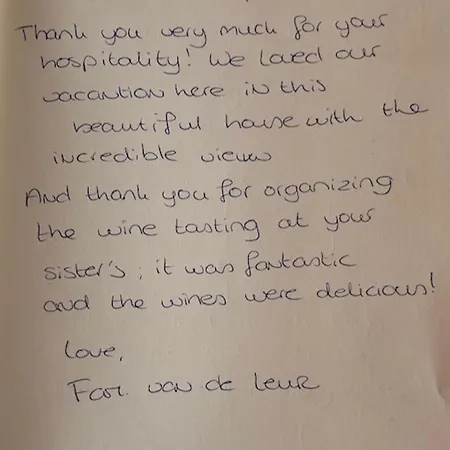 Thank you very much for your
hospitality! We loved our
vacantion here in this
beautiful house with the
incredible view
And thank you for organizing
the wine tasting at your
sister's; it was fantastic
and the wines were delicious!
Love,
Fam. van de Leur